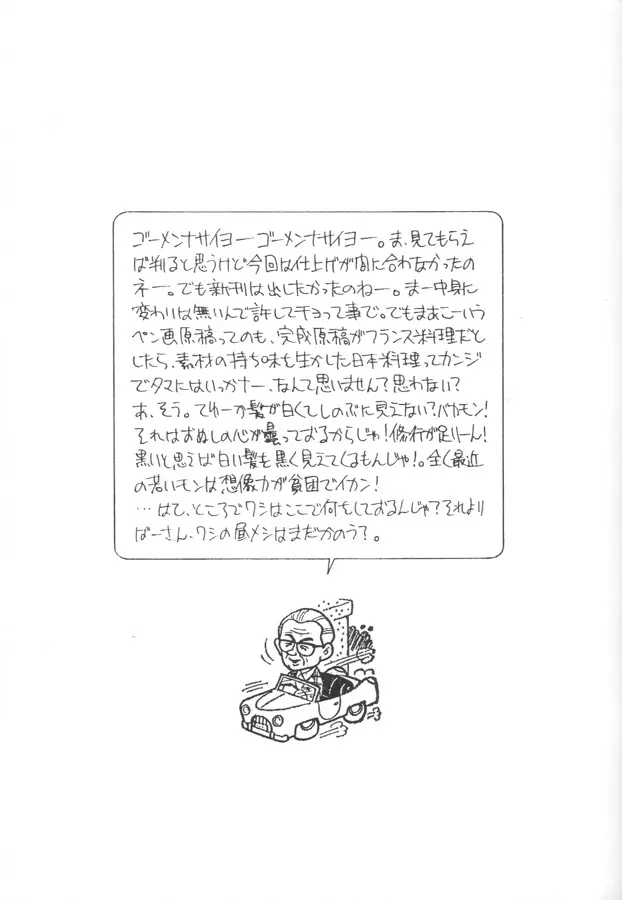 ゴーメンナサイヨーゴーメンナサイヨー。ま、見てもらえ
ば判ると思うけど今回は仕上げが間に合わなかったの
ネー。でも新刊は出したかったのねー。まー中身に
変わりは無いんで許してチョって事で。でもまあこーいう
ペン画原稿ってのも、完成原稿がフランス料理だと
したら、素材の持ち味も生かした日本料理ってカンジ
でタマにはいっかナー、なんて思いません?思わない?
あ、そう。てゆーか髪が白くてしのぶに見えない?バカモン!
それはおぬしの心が曇っておるからじゃ!修行が足りーん!
黒いと思えば白い髪も黒く見えてくるもんじゃ!。全く最近
の若いモンは想像力が貧困でイカン!
…はて、ところでワシはここで何をしておるんじゃ?それより
ばーさん、ワシの昼メシはまだかのう?。